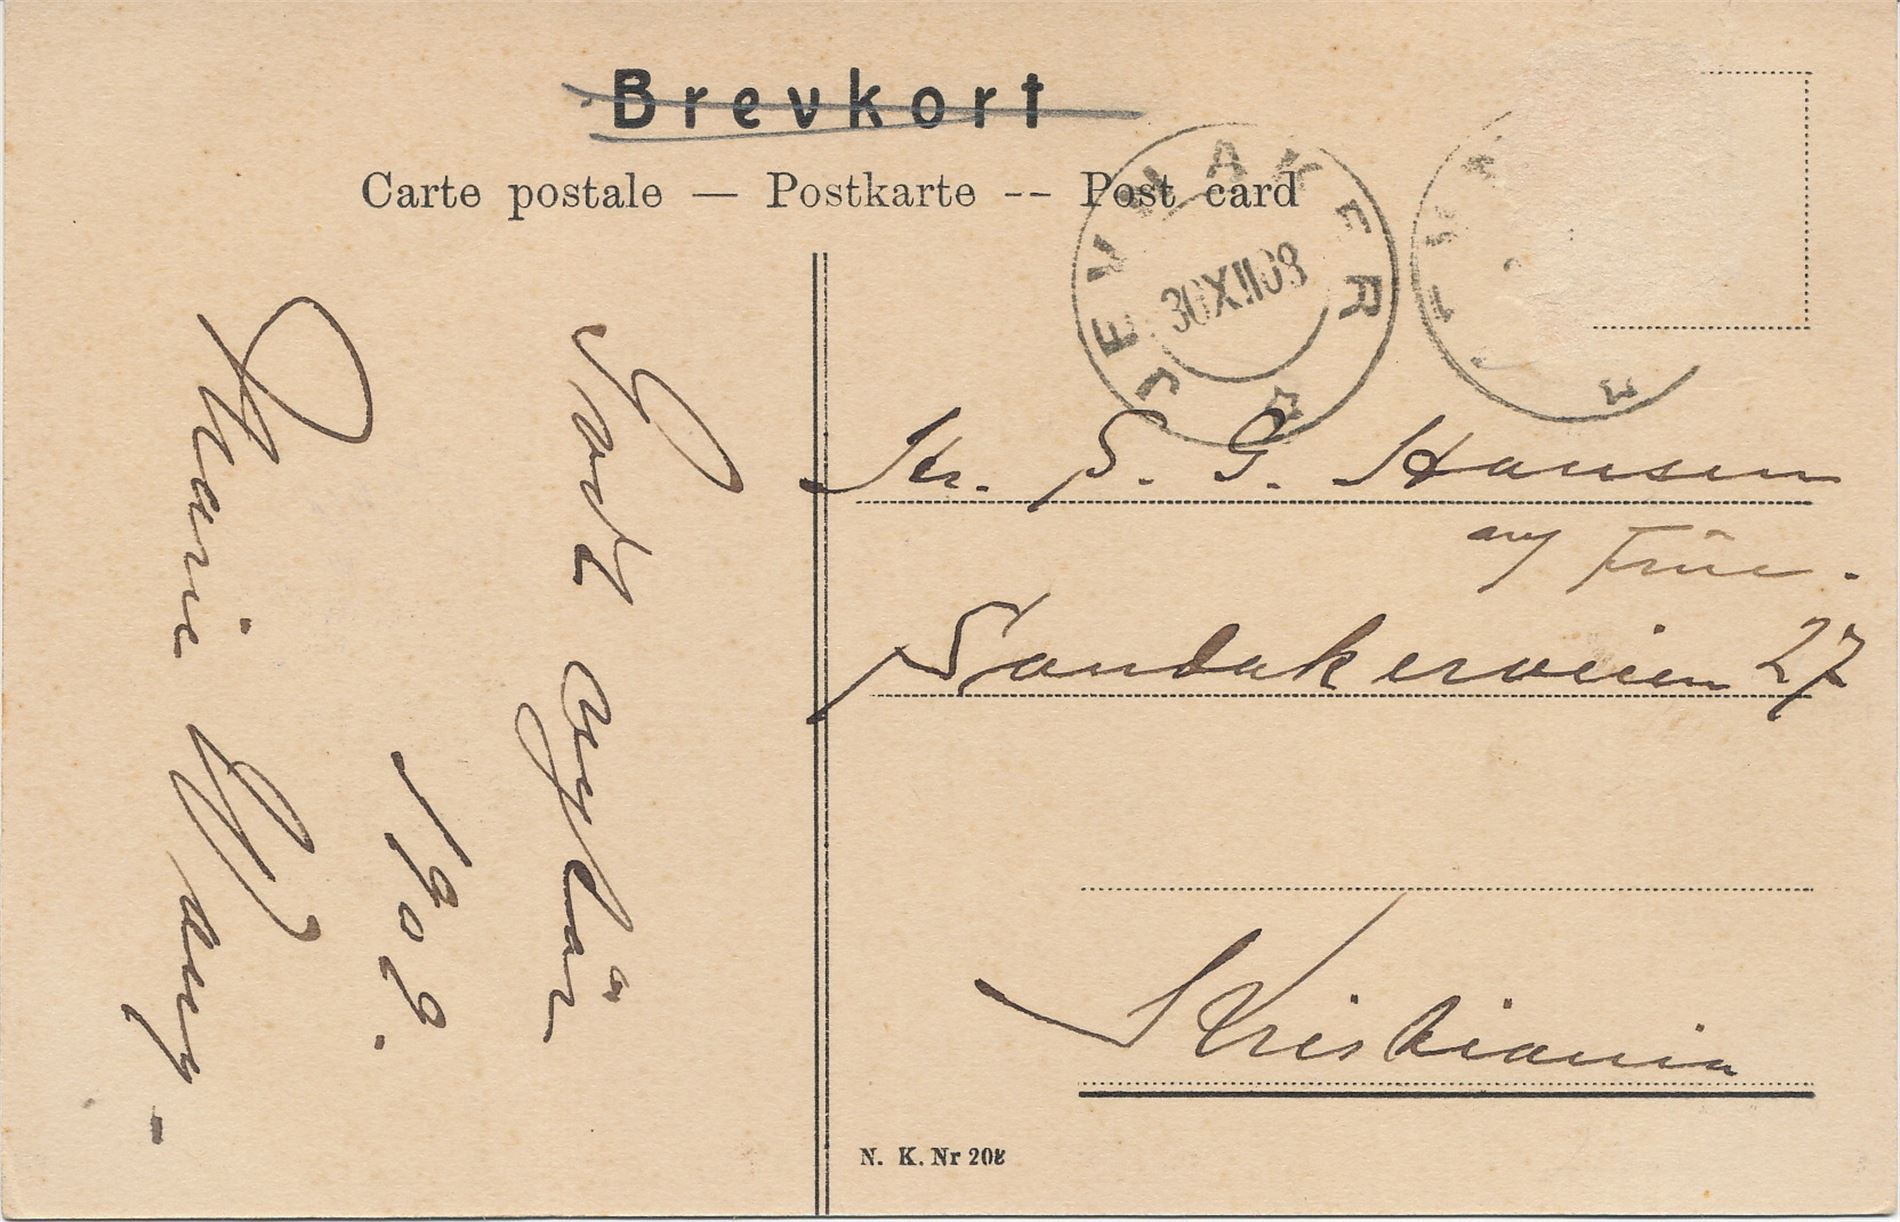 Brevkort
Carte postale — Postkarte -- Post card
JEVNAKER
30 XII 08
Hr. S. G. Hansen
og Frue.
Sandakerveien 27
Kristiania
Godt nytår
1909.
Marie
N. K. Nr 208